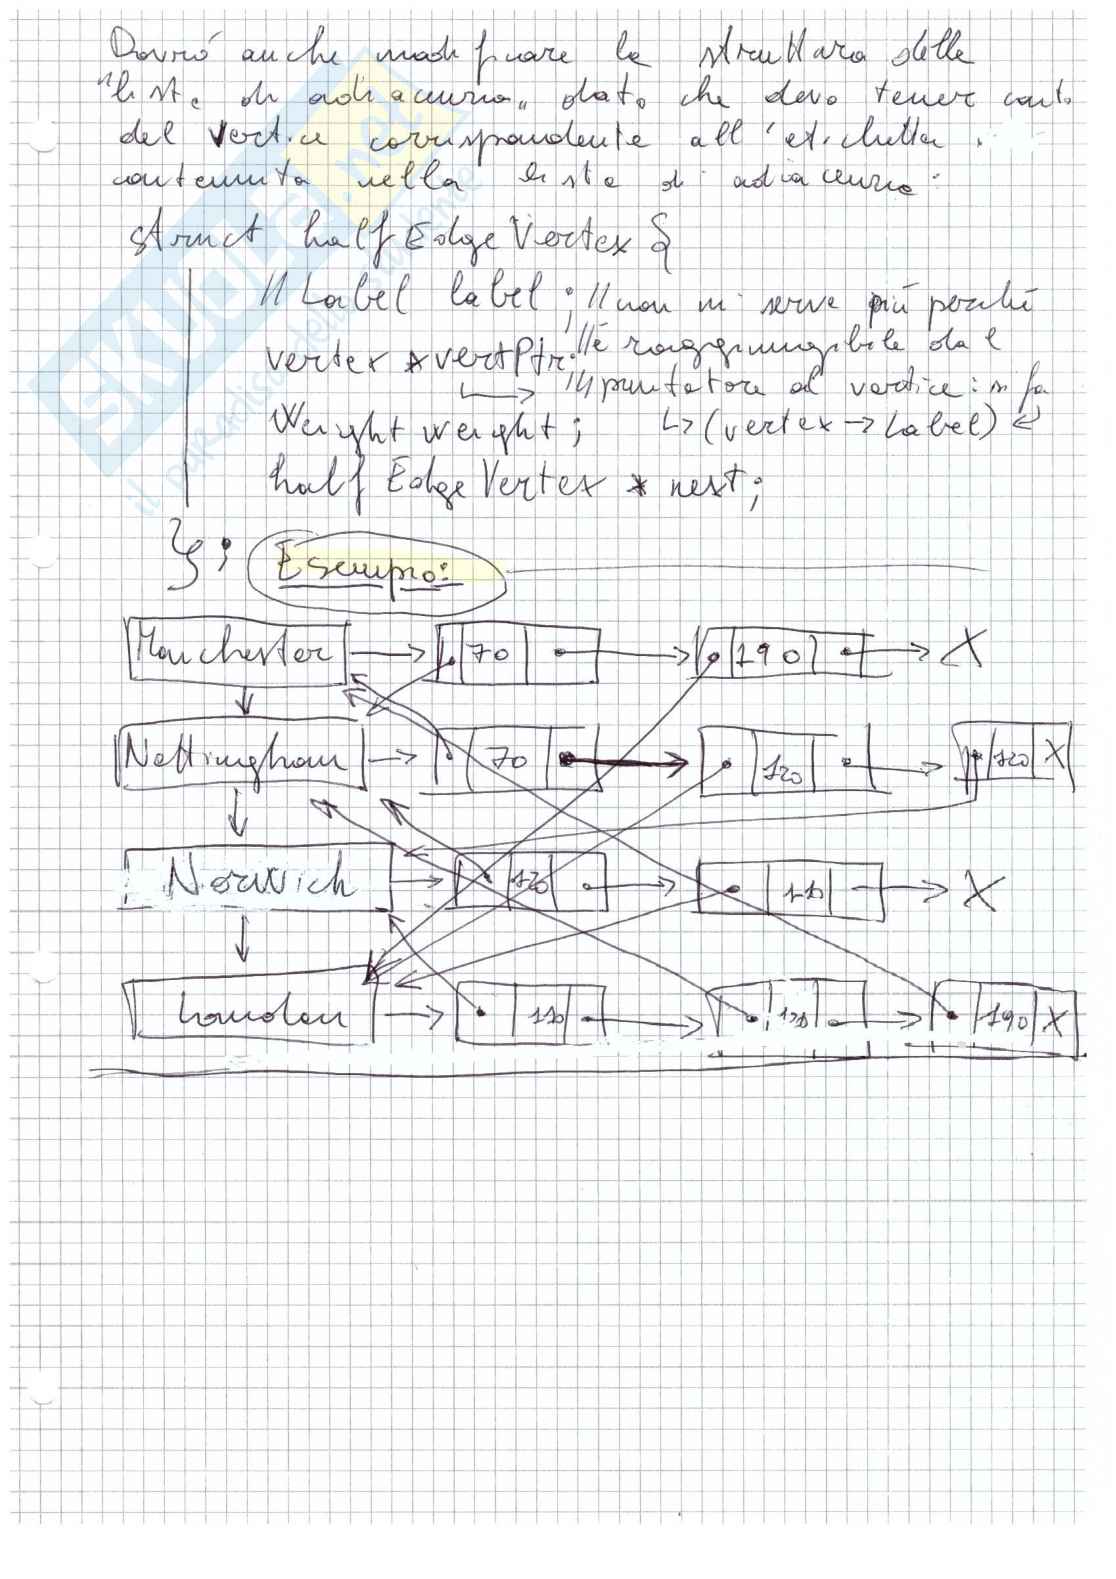 Dovrò anche modificare la struttura delle
"liste di adiacenza" dato che devo tener conto
del vertice corrispondente all'etichetta
contenuta nella lista di adiacenza:
struct halfEdgeVertex {
// Label label; // non mi serve più perché
vertex *vertPtr; // è raggiungibile dal
// puntatore al vertice: si fa
Weight weight; ↳ (vertex → Label) ↵
halfEdgeVertex * next;
};
Esempio:
Manchester 70 190 X
Nottingham 70 120 120 X
Norwich 120 110 X
London 110 120 190 X
SKUOLA.net
il paradiso dello studente